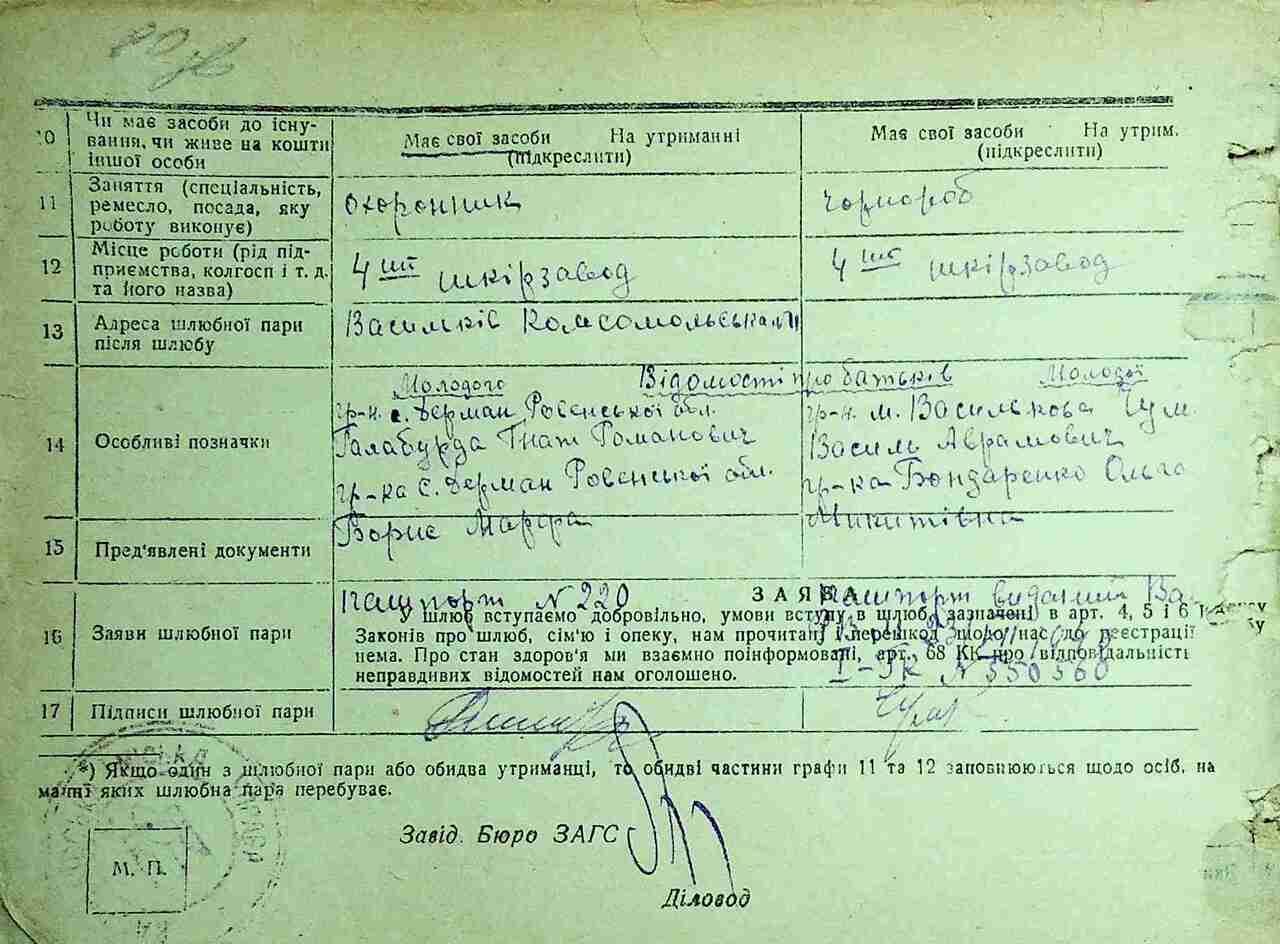 10 Чи має засоби до існу-
вання, чи живе на кошти
іншої особи
Має свої засоби На утриманні
(підкреслити)
Має свої засоби На утрим.
(підкреслити)
11 Заняття (спеціальність,
ремесло, посада, яку
роботу виконує)
охоронник
чорнороб
12 Місце роботи (рід під-
приємства, колгосп і т. д.
та його назва)
4 ий шкірзавод
4 ий шкірзавод
13 Адреса шлюбної пари
після шлюбу
Василків Комсомольська
14 Особливі позначки
Відомості про батьків
Молодого
гр-н. с. Дерман Ровенської обл.
Галабурда Гнат Романович
гр-ка с. Дерман Ровенської обл.
Борис Марфа
Молодої
гр-н. м. Василькова
Василь Аврамович
гр-ка Бондаренко Ольга
Микитівна
15 Пред'явлені документи
пашпорт N 220
пашпорт виданий
N 550560
16 Заяви шлюбної пари
ЗАЯВА
У шлюб вступаємо добровільно, умови вступу в шлюб, зазначені в арт. 4, 5 і 6
Законів про шлюб, сім'ю і опеку, нам прочитані і перешкод щодо нас до реєстрації
нема. Про стан здоров'я ми взаємно поінформовані, арт. 68 КК про відповідальність
неправдивих відомостей нам оголошено.
17 Підписи шлюбної пари
*) Якщо один з шлюбної пари або обидва утриманці, то обидві частини графи 11 та 12 заповнюються щодо осіб, на
яких шлюбна пара перебуває.
Завід. Бюро ЗАГС
М. П.
Діловод